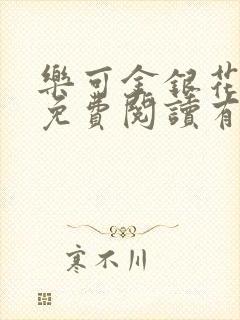 樂可金銀花
免費閱讀有
寒不川